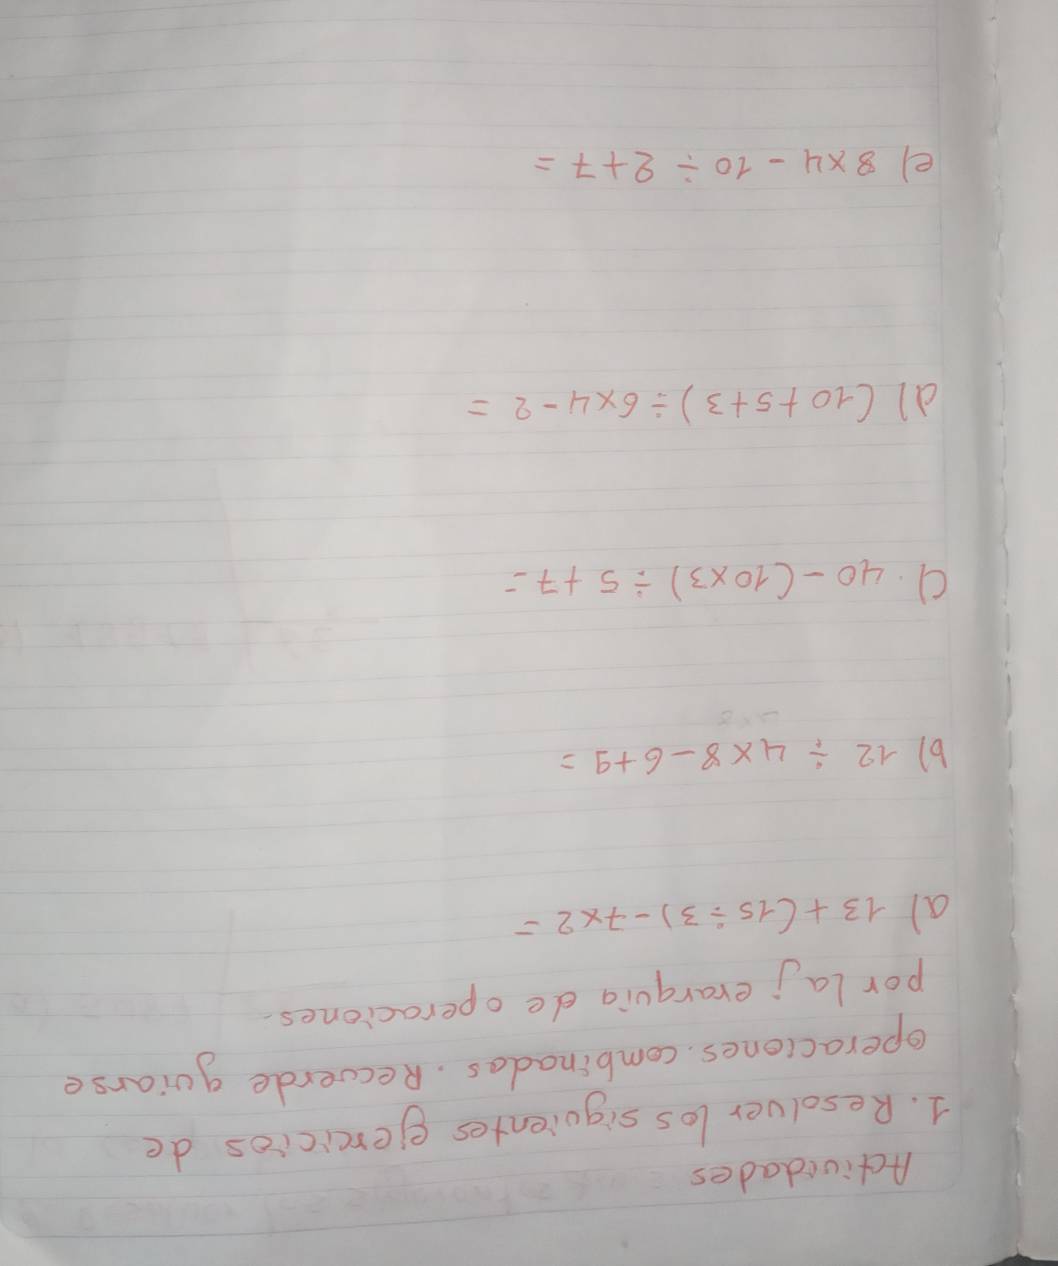 Actividades
1. Resolver los siguientes ejercicios de
operaciones. combinadas. Recuerde guiarse
por la jerarquia de operaciones.
a) 13 + (15 ÷ 3) - 7x2 =
b) 12 ÷ 4 x 8 - 6 + 9 =
c). 40 - (10x3) ÷ 5 + 7 =
d) (10 + 5 + 3) ÷ 6x4 - 2 =
e) 8x4 - 10 ÷ 2 + 7 =